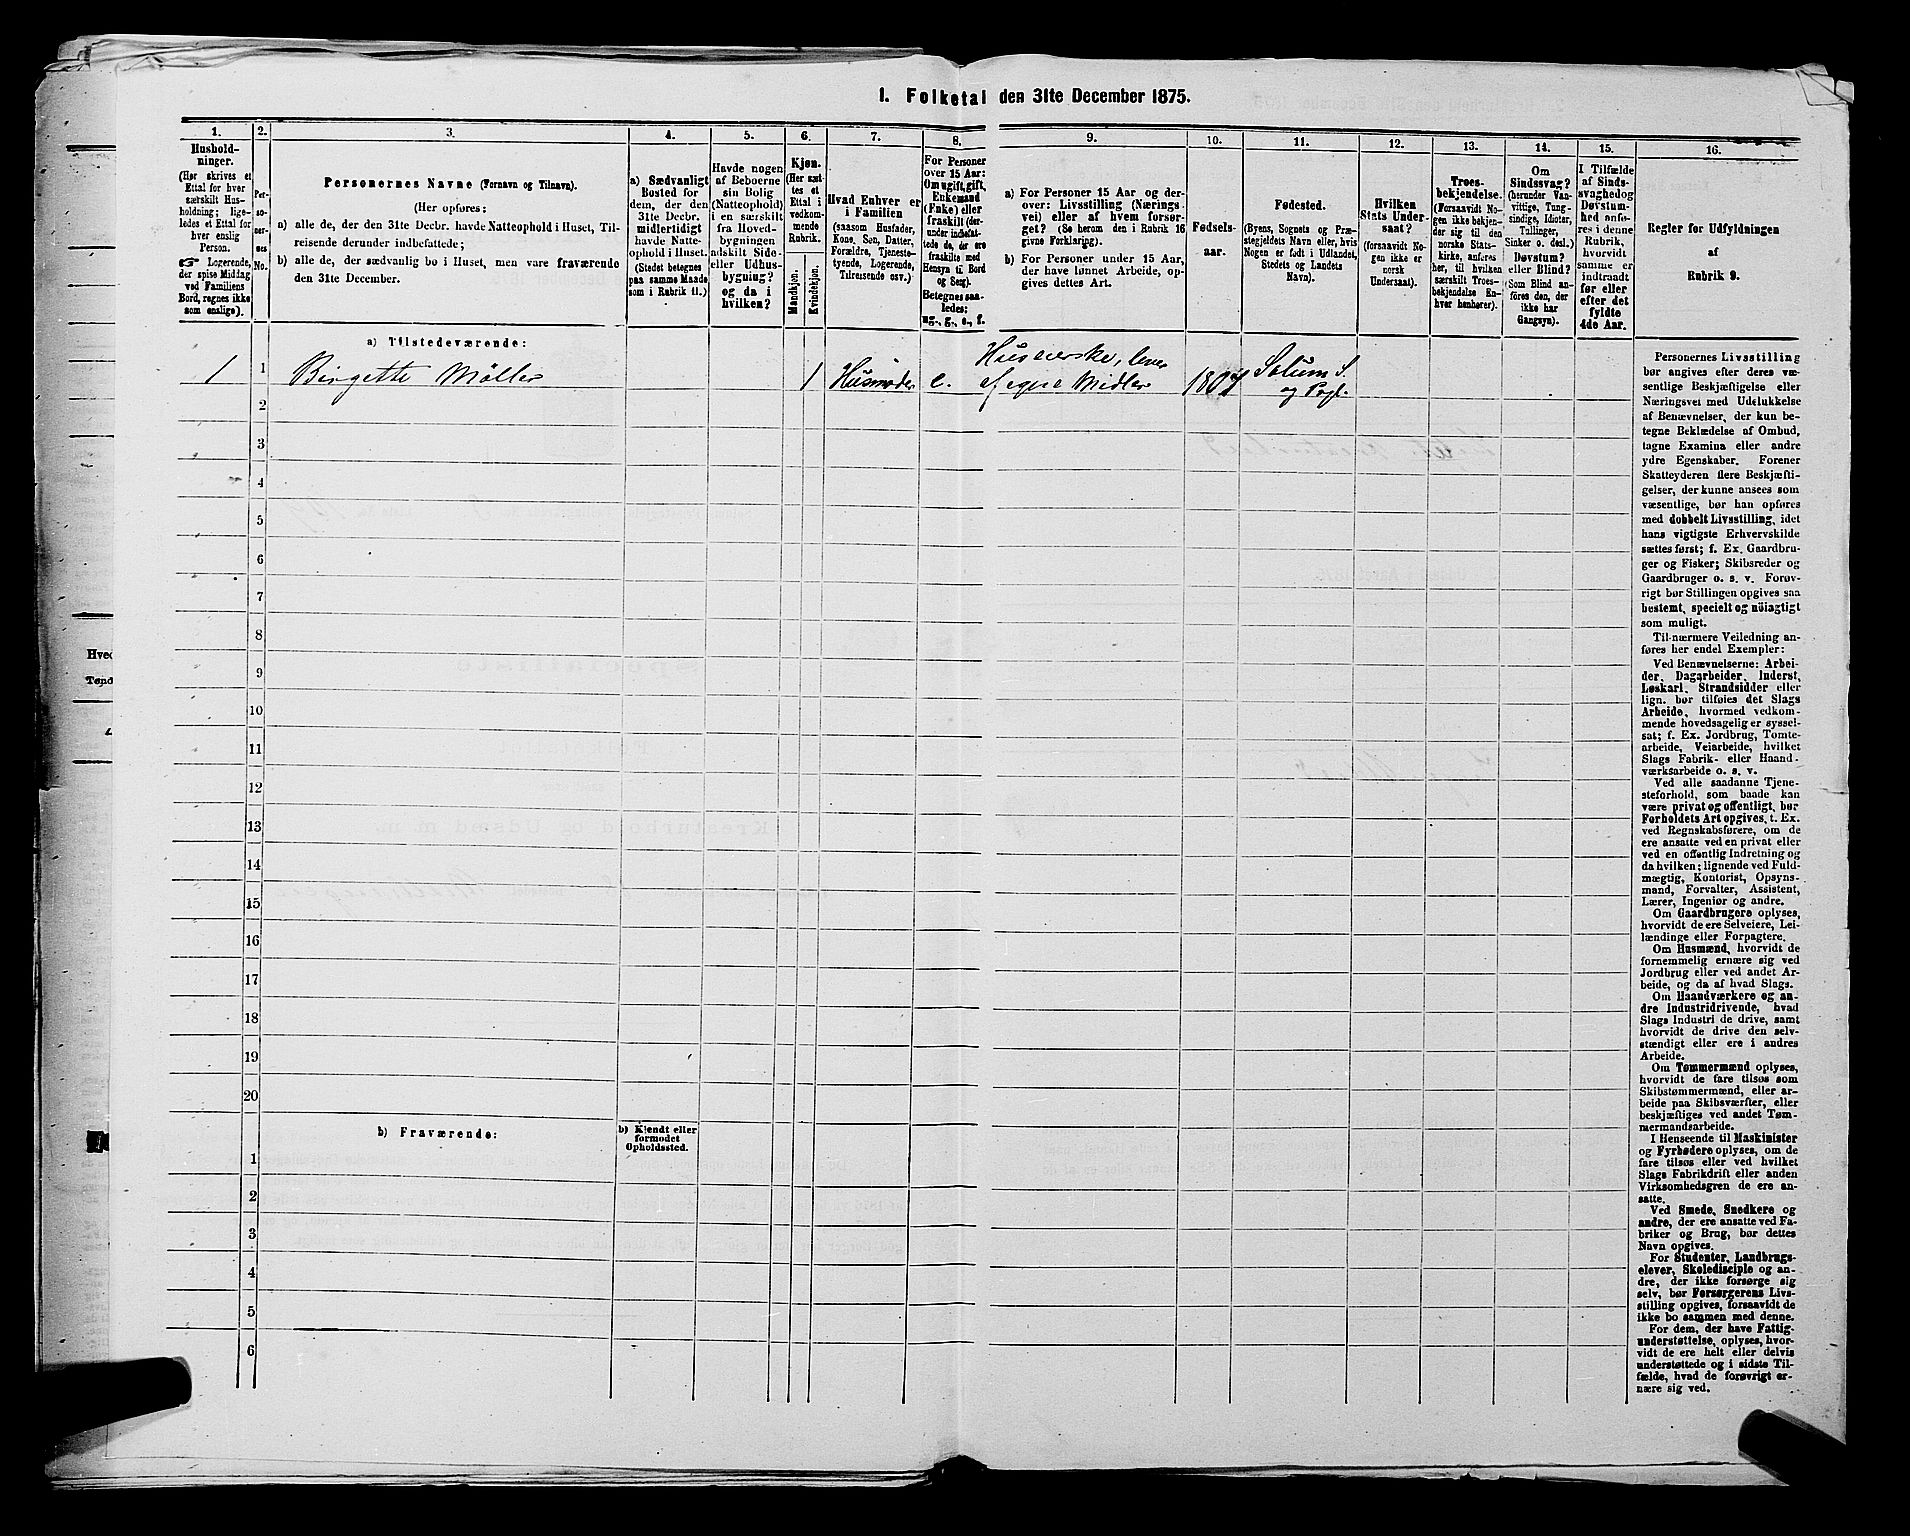 1. Folketal den 31te December 1875.
1.
2.
3.
4.
5.
6.
7.
8.
9.
10.
11.
12.
13.
14.
15.
16.
Hushold-
ninger.
(Her skrives et
Ettal for hver
særskilt Hus-
holdning; lige-
ledes et Ettal for
hver enslig
Person.
☞ Logerende,
der spise Middag
ved Familiens
Bord, regnes ikke
som enslige).
Per-
so-
ner-
nes
No.
Personernes Navne (Fornavn og Tilnavn).
(Her opføres:
a) alle de, der den 31te Decbr. havde Natteophold i Huset, Til-
reisende derunder indbefattede;
b) alle de, der sædvanlig bo i Huset, men vare fraværende
den 31te December.
a) Sædvanligt
Bosted for
dem, der den
31te Decbr.
midlertidigt
havde Natte-
ophold i Huset.
(Stedet betegnes
paa samme Maade
som i Rubrik 11.)
Havde nogen
af Beboerne
sin Bolig
(Natteophold)
i en særskilt
fra Hoved-
bygningen
adskilt Side-
eller Udhus-
bygning?
og da i
hvilken?
Kjøn.
(Her sæt-
tes et
Ettal i
vedkom-
mende
Rubrik.
Mandkjøn.
Kvindekjøn.
Hvad Enhver er
i Familien
(saasom Husfader,
Kone, Søn, Datter,
Forældre, Tjeneste-
tyende, Logerende,
Tilreisende osv.)
For Personer
over 15 Aar:
Om ugift, gift,
Enkemand
(Enke) eller
fraskilt (der-
under indbefat-
tede de, der ere
fraskilte med
Hensyn til Bord
og Seng).
Betegnes saa-
ledes:
ug., g., e., f.
a) For Personer 15 Aar og der-
over: Livsstilling (Nærings-
vei) eller af hvem forsør-
get? (Se herom den i Rubrik 16
givne Forklaring).
b) For Personer under 15 Aar,
der have lønnet Arbeide, op-
gives dettes Art.
Fødsels-
aar.
Fødested.
(Byens, Sognets og Præ-
stegjeldets Navn eller, hvis
Nogen er født i Udlandet,
Stedets og Landets
Navn).
Hvilken
Stats Under-
saat?
(forsaavidt No-
gen ikke er
norsk
Undersaat).
Troes-
bekjendelse.
(Forsaavidt No-
gen ikke bekjen-
der sig til den
norske Stats-
kirke, anføres
her, til hvilken
særskilt Troes-
bekjendelse En-
hver henhører).
Om
Sindssvag?
(herunder Van-
vittige, Tung-
sindige, Idioter,
Tullinger,
Sinker o. desl.)
Døvstum?
eller Blind?
(Som Blind an-
føres den, der
ikke har
Gangsyn).
I Tilfælde
af Sinds-
svaghed og
Døvstum-
hed anfø-
res i denne
Rubrik,
hvorvidt
samme er
indtraadt
før eller
efter det
fyldte
4de Aar.
Regler for Udfyldningen
af
Rubrik 9.
a) Tilstedeværende:
1 1 Birgette Möller 1 Husmoder e. Huseierske, lever af egne Midler 1807 Solum S.
og Pgl.
2
3
4
5
6
7
8
9
10
11
12
13
14
15
16
17
18
19
20
b) Fraværende:
b) Kjendt eller
formodet
Opholdssted.
1
2
3
4
5
6
Personernes Livsstilling
bør angives efter deres væ-
sentlige Beskjæftigelse eller
Næringsvei med Udelukkelse
af Benævnelser, der kun be-
tegne Beklædelse af Ombud,
tagne Examina eller andre
ydre Egenskaber. Forener
Skatteyderen flere Beskjæfti-
gelser, der kunne ansees som
væsentlige, bør han opføres
med dobbelt Livsstilling, idet
hans vigtigste Erhvervskilde
sættes først; f. Ex. Gaardbru-
ger og Fisker; Skibsreder og
Gaardbruger o. s. v. Forøv-
rigt bør Stillingen opgives saa
bestemt, specielt og nöiagtigt
som muligt.
Til nærmere Veiledning an-
føres her endel Exempler:
Ved Benævnelserne: Arbei-
der, Dagarbeider, Inderst,
Løskarl, Strandsidder eller
lign. bør tilføies det Slags
Arbeide, hvormed vedkom-
mende hovedsagelig er syssel-
sat; f. Ex. Jordbrug, Tomte-
arbeide, Veiarbeide, hvilket
Slags Fabrik- eller Haand-
værksarbeide o. s. v.
Ved alle saadanne Tjene-
steforhold, som baade kan
være privat og offentligt, bør
Forholdets Art opgives, t. Ex.
ved Regnskabsførere, om de
ere ansatte ved en privat eller
ved en offentlig Indretning og
da hvilken; lignende ved Fuld-
mægtig, Kontorist, Opsyns-
mand, Forvalter, Assistent,
Lærer, Ingeniør og andre.
Om Gaardbrugere oplyses,
hvorvidt de ere Selveiere, Lei-
lændinge eller Forpagtere.
Om Husmænd, hvorvidt de
fornemmelig ernære sig ved
Jordbrug eller ved andet Ar-
beide, og da af hvad Slags.
Om Haandværkere og an-
dre Industridrivende, hvad
Slags Industri de drive, samt
hvorvidt de drive den selv-
stændigt eller ere i andres
Arbeide.
Om Tømmermænd oplyses,
hvorvidt de fare tilsøs som
Skibstømmermænd, eller ar-
beide paa Skibsværfter, eller
beskjæftiges ved andet Tøm-
mermandsarbeide.
I Henseende til Maskinister
og Fyrbødere oplyses, om de
fare tilsøs eller ved hvilket
Slags Fabrikdrift eller anden
Virksomhedsgren de ere an-
satte.
Ved Smede, Snedkere og
andre, der ere ansatte ved Fa-
briker og Brug, bør dettes
Navn opgives.
For Studenter, Landbrugs-
elever, Skoledisciple og an-
dre, der ikke forsørge sig
selv, bør Forsørgerens Livs-
stilling opgives, forsaavidt de
ikke bo sammen med denne.
For dem, der have Fattig-
understøttelse, oplyses, hvor-
vidt de ere helt eller delvis
understøttede og i sidste Til-
fælde, hvad de forøvrigt er-
nære sig ved.